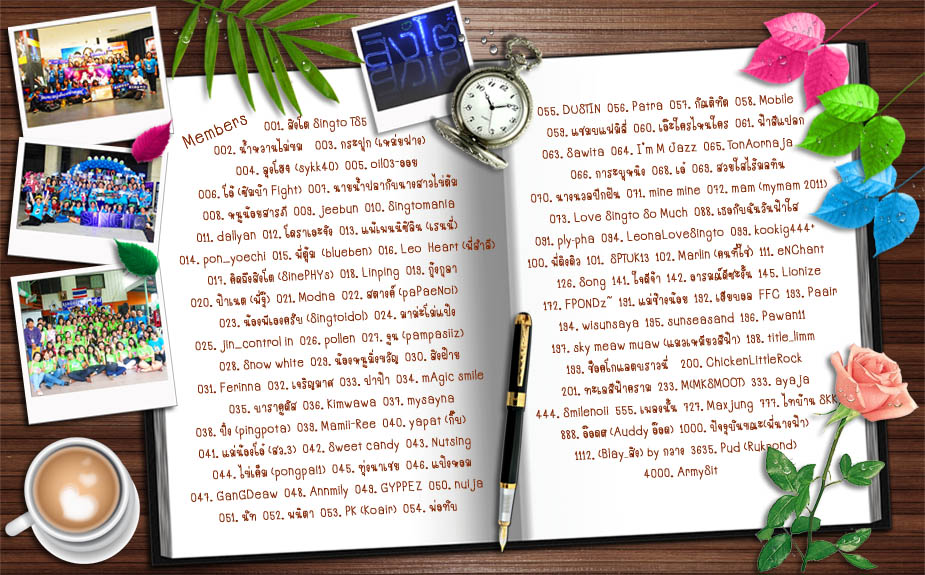 Members
001. สิงโต Singto TS5
002. น้ำหวานไม่ขม 003. กระปุก (เหม่ยฟาง)
004. ลุงโฮง (sykk40) 005. oil03-ออย
006. โอ๋ (ซิมบ้า Fight) 007. นายน้ำปลากับนางสาวไข่ต้ม
008. หนูน้อยสารภี 009. jeebun 010. Singtomania
011. dallyan 012. โคราเอะจัง 013. แพ้เพนนิซิลิน (เรนนี่)
014. pon_yoechi 015. พี่ตุ้ม (blueben) 016. Leo Heart (พี่สำลี)
017. คิดถึงสิงโต (SinePHYs) 018. Linping 019. กุ้งกุลา
020. ป้าเนต (พี่จุ๊) 021. Modna 022. สตางค์ (paPaeNoi)
023. น้องพีเองครับ (Singtoidol) 024. มาม่าไม่แป้ง
025. jin_control in 026. pollen 027. จูน (pampasiiz)
028. Snow white 029. น้องหนูมิ่งขวัญ 030. สิงฝ้าย
031. Ferinna 032. เจริญมาศ 033. ปาป้า 034. mAgic smile
035. บาราคูดัส 036. Kimwawa 037. mysayna
038. ปิ่ง (pingpota) 039. Mamii-Ree 040. yapat (กิ๊บ)
041. แม่น้องโอ๋ (สว.3) 042. Sweet candy 043. Nutsing
044. ไข่เค็ม (pongpal1) 045. ทุ่งนาเชย 046. แป้งหอม
047. GanGDeaw 048. Annmily 049. GYPPEZ 050. nulja
051. นัท 052. พนิดา 053. PK (Koair) 054. พ่อทัย
055. DUSTIN 056. Patra 057. กัณติทัต 058. Mobile
059. แซมยแฟมิลี่ 060. เอ๊ะใครไหนใคร 061. ฟ้าสีแปลก
063. Sawita 064. I'm M Jazz 065. TonAornaja
066. การะบุหนิง 068. เอ๋ 069. สวยใสไร้มลทิน
070. นางนวลปีกฝัน 071. mine mine 072. mam (mymam 2011)
073. Love Singto So Much 088. เธอกับฉันวันฟ้าใส
091. ply-pha 094. LeonaLoveSingto 099. kookig444+
100. พี่ติงติว 101. SPTUK13 102. Marlin (คนที่ใช่) 111. eNChant
126. Song 141. ใจดีจ้า 142. อารมณ์ดีซะงั้น 145. Lionize
172. FPONDz~ 191. แม่ช้างน้อย 192. เฮียบอล FFC 193. Paair
194. wisunsaya 195. sunseasand 196. Pawan11
197. sky meaw muaw (แมวเหมียวสีฟ้า) 198. title_limm
199. ช็อคโกแลตบราวนี่ 200. ChickenLittleRock
201. ทะเลสีฟ้าคราม 233. M(MKSMOOT) 333. ayaja
444. Smilenoii 555. เพลงนั้น 727. Maxjung 777. ไทบ้าน SKK
888. อ๊อดศ (Auddy อ๊อด) 1000. ปัจจุบันขณะ(พี่นางฟ้า)
1112. (Blay_สิง) by กวาง 3635. Pud (Rukpond)
4000. ArmySit